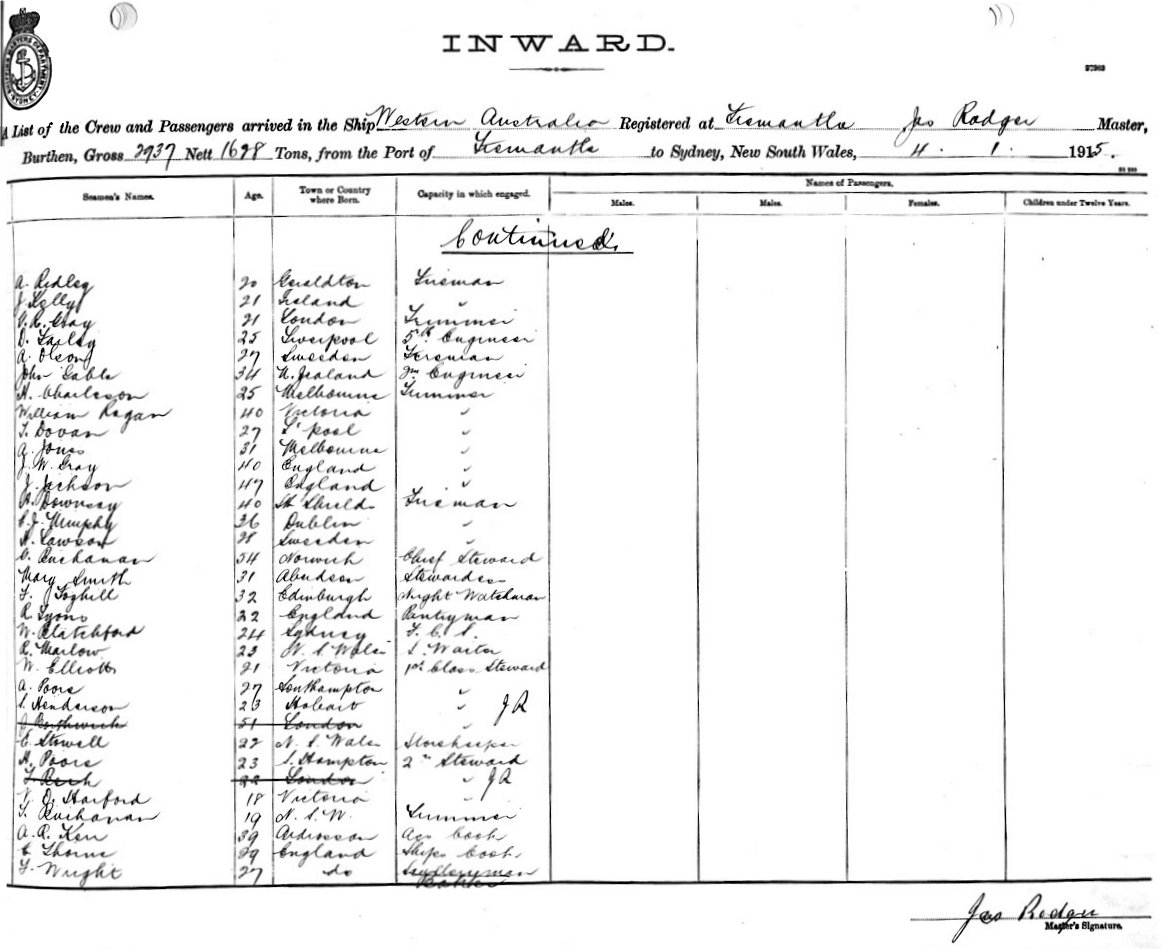 INWARD.
97369
A List of the Crew and Passengers arrived in the Ship Western Australia Registered at Fremantle Jas Rodger Master,
Burthen, Gross 2937 Nett 1698 Tons, from the Port of Fremantle to Sydney, New South Wales, 4 . 1 . 1915.
Seamen's Names. Age. Town or Country where Born. Capacity in which engaged. Names of Passengers.
Males. Males. Females. Children under Twelve Years.
Continued.
A. Ridley 20 Geraldton Fireman
J. Kelly 21 Ireland "
G. R. Gray 21 London Trimmer
D. Farley 25 Liverpool 5th Engineer
A. Olson 27 Sweeden Fireman
John Gable 34 N. Zealand 2nd Engineer
H. Charleson 25 Melbourne Trimmer
William Ragan 40 Victoria "
T. Dovan 27 L'pool "
A. Jones 31 Melbourne "
J. W. Gray 40 England "
J. Jackson 47 England "
Downsay 40 Sth Shields Fireman
J. Murphy 36 Dublin "
Lawson 28 Sweeden "
G. Buchanan 54 Norwich Chief Steward
Mary Smith 31 Aberdeen Stewardess
F. Foghill 32 Edinburgh Night Watchman
R. Lyons 22 England Pantryman
W. Blatchford 24 Sydney F. C. S.
R. Marlow 23 N. S Wales S. Waiter
W. Elliott 21 Victoria 1st Class Steward
A. Poore 27 Southampton "
S. Henderson 23 Hobart " JR
J. Borthwick 51 London "
E. Stowell 22 N. S. Wales Storekeeper
H. Poore 23 S. Hampton 2nd Steward
22 London " JR
V. O. Harford 18 Victoria "
Buchanan 19 N. S. W. Trimmer
A. R. Kerr 39 Ardrossan Ass Cook
C. Thorne 29 England Ships Cook
F. Wright 27 do Sculleryman
Jas Rodger
Master's Signature.